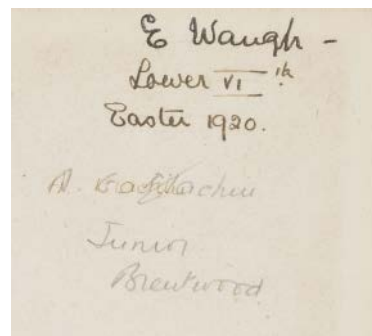 E Waugh -
Lower VI th
Easter 1920.
A.
Junior
Brentwood